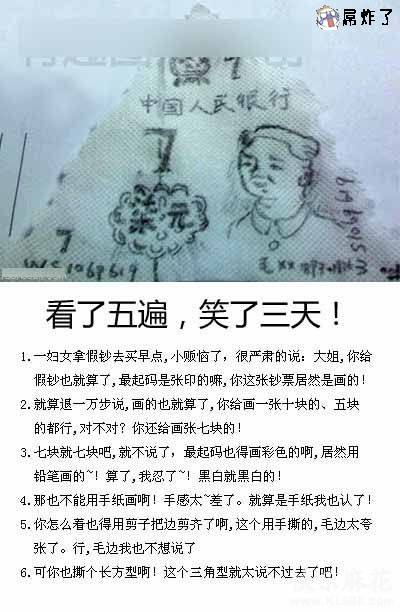 屌炸了
7
中国人民银行
7
柒元
7
WC1069619
看了五遍，笑了三天！
1.一妇女拿假钞去买早点,小贩恼了，很严肃的说：大姐,你给
假钞也就算了,最起码是张印的嘛,你这张钞票居然是画的！
2.就算退一万步说,画的也就算了,你给画一张十块的、五块
的都行,对不对？你还给画张七块的！
3.七块就七块吧,就不说了，最起码也得画彩色的啊,居然用
铅笔画的~！算了,我忍了~！黑白就黑白的！
4.那也不能用手纸画啊！手感太~差了。就算是手纸我也认了！
5.你怎么看也得用剪子把边剪齐了啊,这个用手撕的,毛边太夸
张了。行,毛边我也不想说了
6.可你也撕个长方型啊！这个三角型就太说不过去了吧！